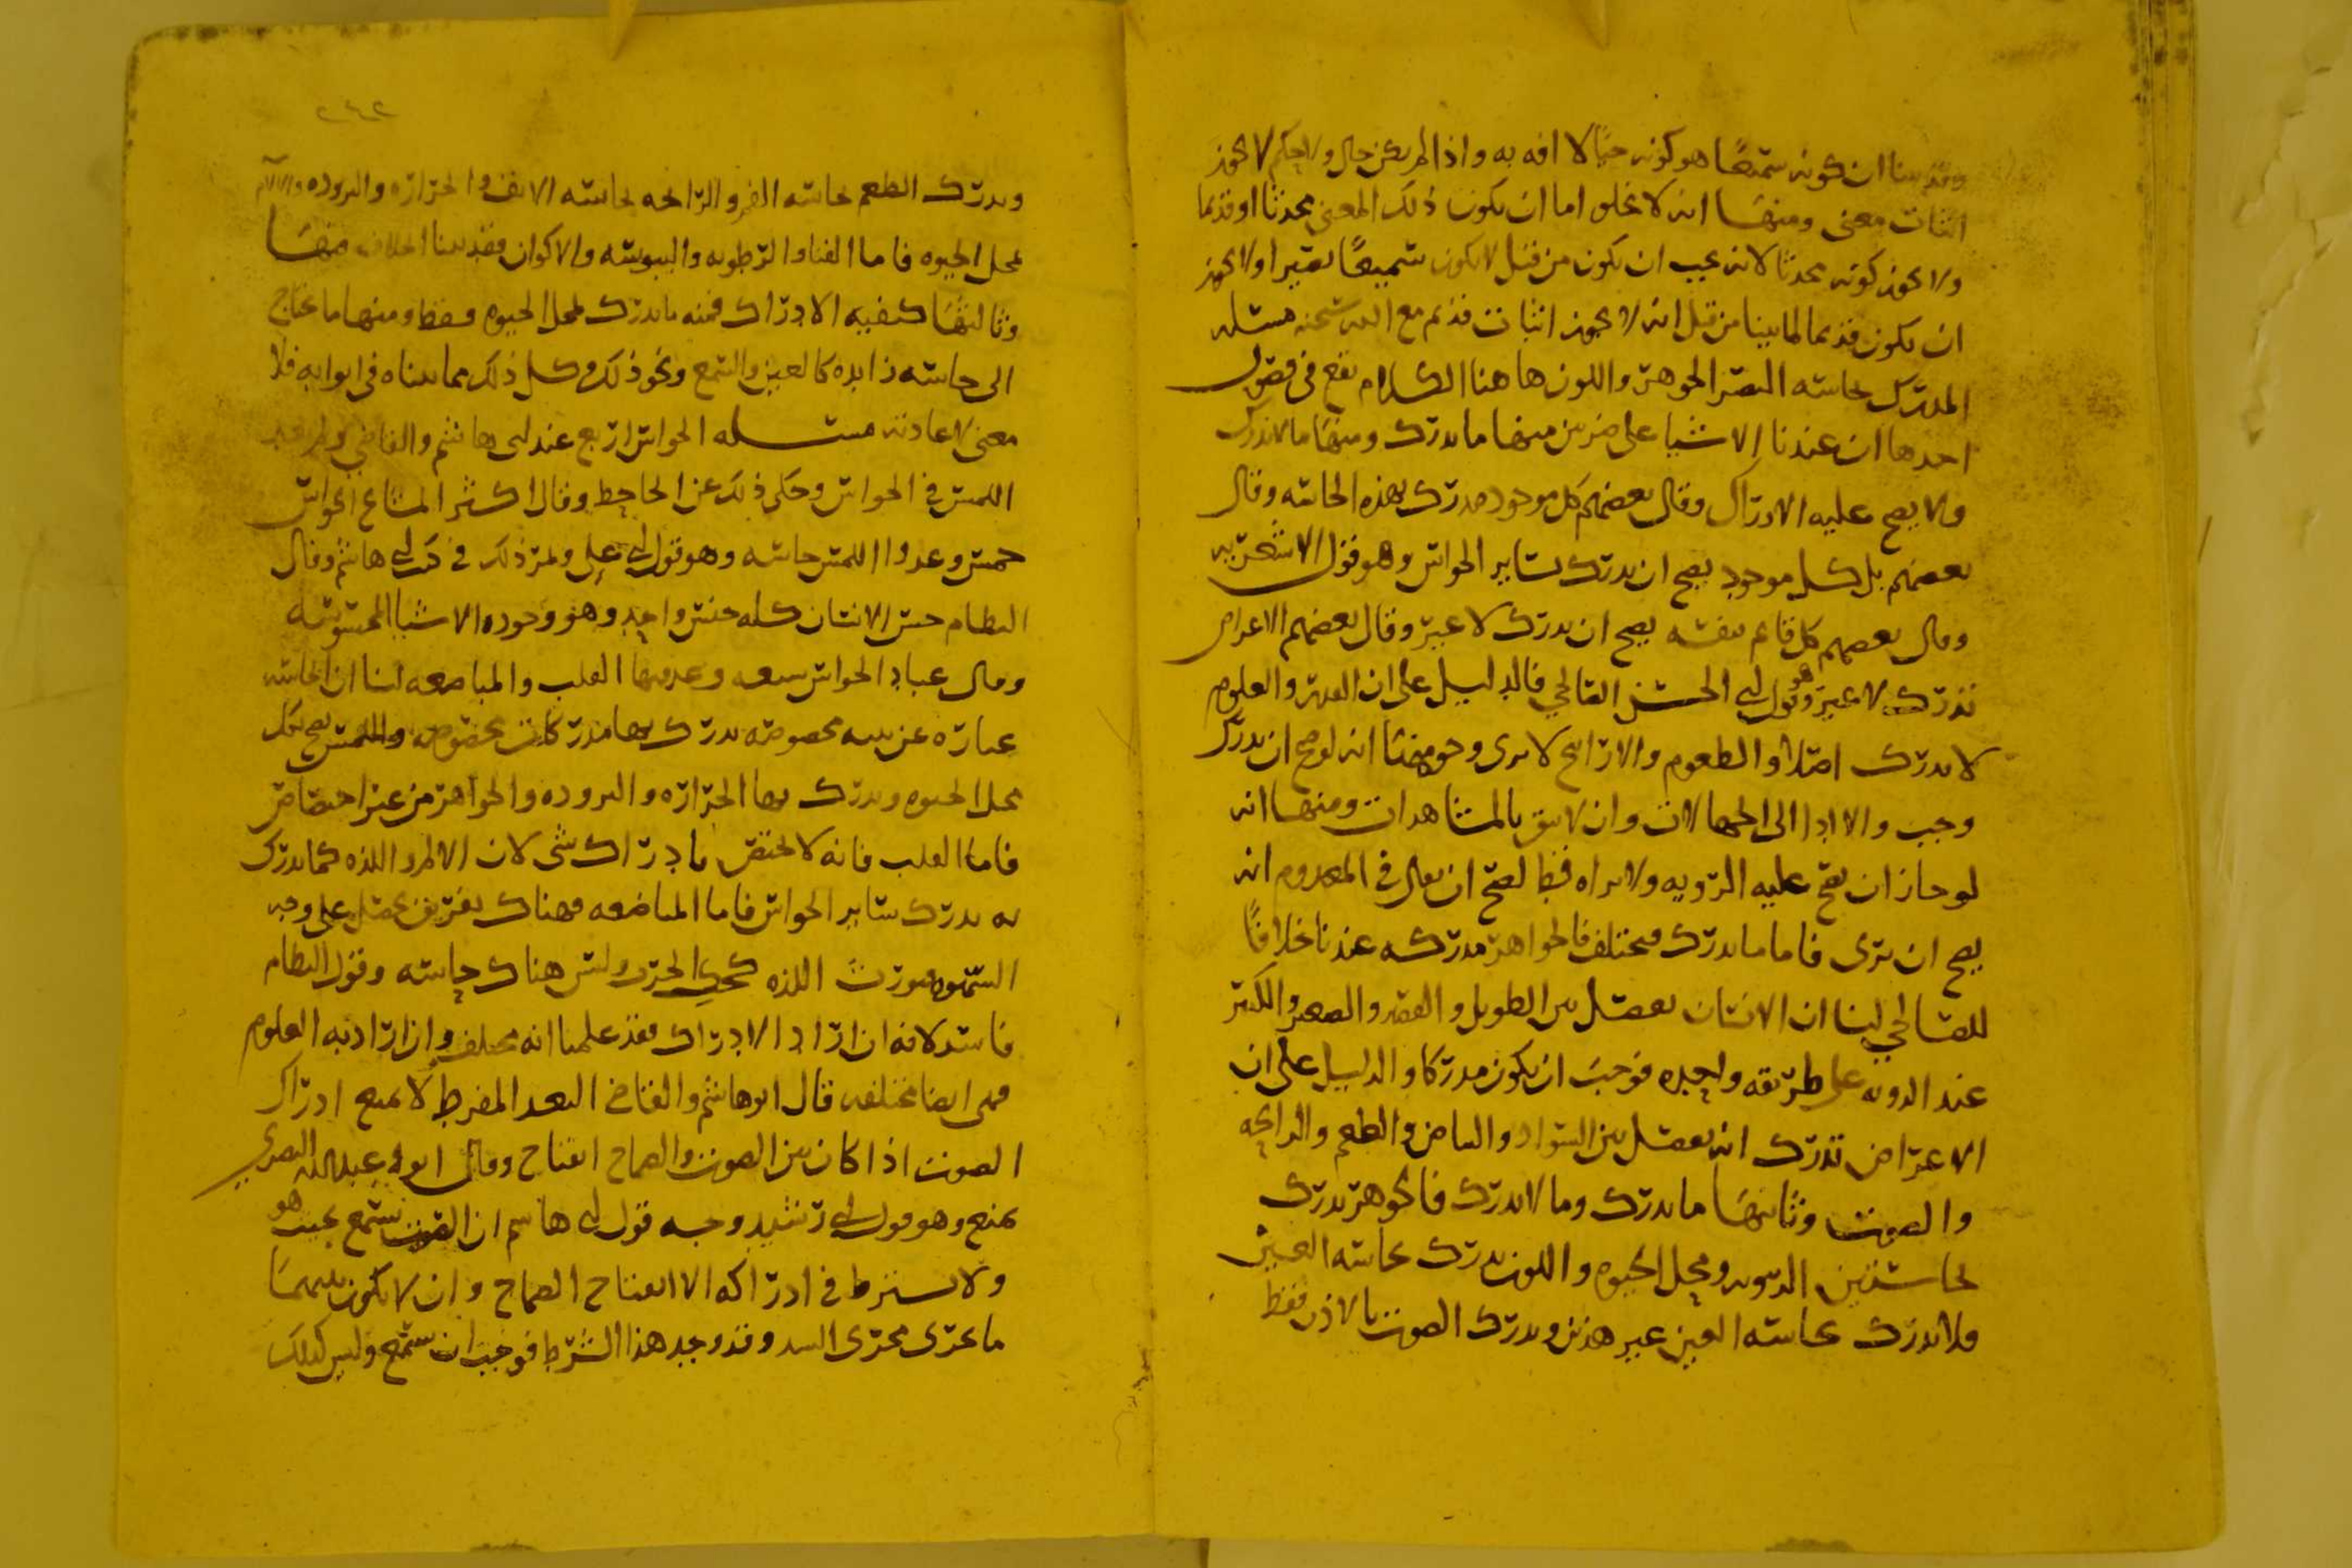 وقد بينا ان كونه سميعا هو كونه حيا لا افه به واذا لم يكن حال ولا حكم لا يجوز
اثبات معنى ومنها انه لا يخلو اما ان يكون ذلك المعنى محدثا او قديما
ولا يجوز كونه محدثا لانه يجب ان يكون من قبل لا يكون سميعا بصيرا ولا يجوز
ان يكون قديما لما بينا من قبل انه لا يجوز اثبات قديم مع الله سبحنه مسئله
المدرك بحاسه البصر الجوهر واللون ها هنا الكلام يقع في فصول
احدها ان عندنا الاشيا على ضربين منها ما يدرك ومنها ما لا يدرك
ولا يصح عليه الادراك وقال بعضهم كل موجود مدرك بهذه الحاسه وقال
بعضهم بل كل موجود يصح ان يدرك بساير الحواس وهو قول الاشعريه
وقال بعضهم كل قايم بنفسه يصح ان يدرك لا غير وقال بعضهم الاعراض
تدرك لا غير وهو قول ابي الحسين الصالحي فالدليل على ان القدر والعلوم
لا يدرك اصلا والطعوم والارايح لا يرى وجوه منها انه لو صح ان يدرك
وجب والا ادا الى الجهالات وان لا يثق بالمشاهدات ومنها انه
لو جاز ان يصح عليه الرويه ولا يراه قط لصح ان يقال في المعدوم انه
يصح ان يرى فاما ما يدرك فمختلف فالجواهر مدركه عندنا خلافا
للصالحي لنا ان الانسان يفصل بين الطويل والقصير والصغير والكبير
عند الرويه على طريقه واحده فوجب ان يكون مدركا والدليل على ان
الاعراض تدرك انه يفصل بين السواد والبياض والطعم والرايحه
والصوت وثانيها ما يدرك وما لا يدرك فالجوهر يدرك
بحاستين الرويه ومحل الحيوه واللون يدرك بحاسه العين
ولا يدرك بحاسه العين غير هذين ويدرك الصوت بالاذن فقط
٢٤٢
ويدرك الطعم بحاسه الفم والرايحه بحاسه الانف والحراره والبروده والالام
بمحل الحيوه فاما الفنا والرطوبه واليبوسه والاكوان فقد بينا الخلاف فيها
وثالثها كيفيه الادراك فمنه ما يدرك بمحل الحيوه فقط ومنها ما يحتاج
الى حاسه زايده كالعين والسمع ونحو ذلك وكل ذلك مما بيناه في ابوابه فلا
معنى لاعادته مسئله الحواس اربع عند ابي هاشم والقاضي ولم يعد
اللمس في الحواس وحكى ذلك عن الجاحظ وقال اكثر المشايخ الحواس
خمس وعدوا اللمس حاسه وهو قول ابي علي ذلك في ابي هاشم وقال
النظام حس الانسان كله جنس واحد وهو وجوده الاشيا المحسوسه
وقال عباد الحواس سبعه وعد فيها القلب والمباضعه لنا ان الحاسه
عباره عن بنيه مخصوصه يدرك بها مدركات مخصوصه واللمس يصح بكل
محل الحيوه ويدرك بها الحراره والبروده والجواهر من غير اختصاص
فاما القلب فانه لا يختص بادراك شي لان الالم واللذه كما يدرك
به يدرك بساير الحواس فاما المباضعه فهناك تفريق يحصل على وجه
الشهوه فيورث اللذه كحك الجرب وليس هناك حاسه وقول النظام
فاسد لانه ان اراد الادراك فقد علمنا انه مختلف وان اراد به العلوم
فهي ايضا مختلفه قال ابو هاشم والقاضي البعد المفرط لا يمنع ادراك
الصوت اذا كان بين الصوت والصماخ انفتاح وقال ابو عبدالله البصري
يمنع وهو قول ابي رشيد وجه قول ابي هاشم ان الصوت يسمع بحيث هو
ولا يشترط في ادراكه الا انفتاح الصماخ وان لا يكون بينهما
ما يجري مجرى السد وقد وجد هذا الشرط فوجب ان يسمع وليس كذلك